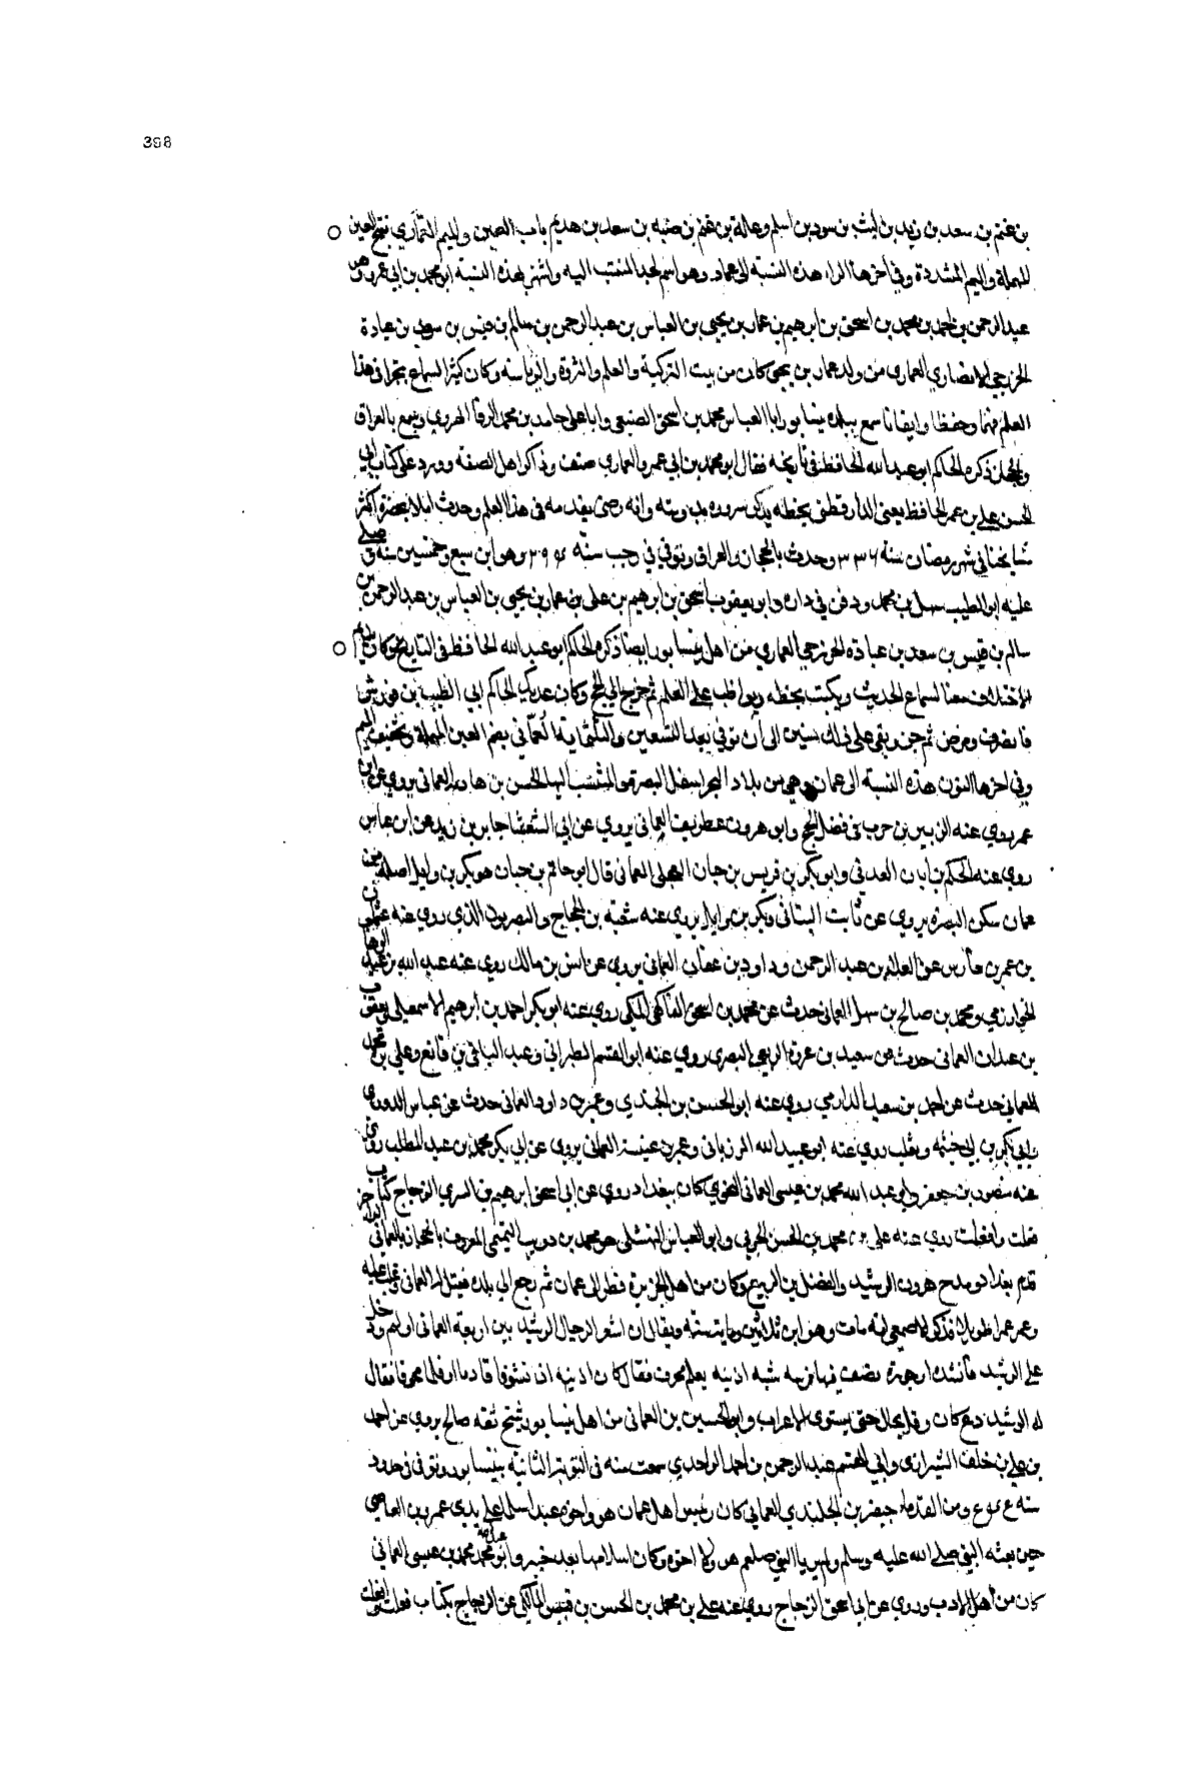 398
بن غنم بن سعد بن زيد بن ليث بن سود بن اسلم وعالة بن غنم بن ضبه بن سعد بن هديم باب العين والميم العماري بفتح العين
المهملة والميم المشددة وفي اخرها الراء هذه النسبة الى عمار وهو اسم لجد المنتسب اليه واشتهر بهذه النسبة ابو محمد بن ابي عمرو وهو
عبد الرحمن بن احمد بن محمد بن اسحق بن ابرهيم بن عمار بن يحيى بن العباس بن عبد الرحمن بن سالم بن قيس بن سعد بن عبادة
الخزرجي الانصاري العماري من ولد عمار بن يحيى كان من بيت التزكية والعلم والثروة والرياسة وكان كثير السماع هذا
العلم فهما وحفظا واتقانا سمع ببلده نيسابور ابا العباس محمد بن اسحق الصبغي وابا علي حامد بن محمد الرفا الهروي وسمع بالعراق
ذكره الحاكم ابو عبد الله الحافظ في تاريخه فقال ابو محمد بن ابي عمرو العماري صنف وذاكر اهل الصنعة وورد علي كتاب ابي
الحسن علي بن عمر الحافظ يعني الدارقطني بخطه يذكر سروره وانه رضي بقدمه في هذا العلم وحدث املا بحضرة اكثر
مشايخنا في شهر رمضان سنة وحدث بالحجاز والعراق وتوفي في رجب سنة وهو ابن سبع وخمسين سنة صلى
عليه ابو الطيب سهل بن محمد ودفن في داره وابو يعقوب اسحق بن ابرهيم بن علي بن عمار بن يحيى بن العباس بن عبد الرحمن بن
سالم بن قيس بن سعد بن عبادة الخزرجي العماري من اهل نيسابور ايضا ذكره الحاكم ابو عبد الله الحافظ في التاريخ وكان
الاختلاف معنا لسماع الحديث ويكتب بخطه ويواظب على العلم ثم خرج الى الحج وكان عديل الحاكم ابي الطيب بن فورش
فانصرف ومرض ثم جن وبقي على ذلك سنين الى ان توفي بعد التسعين والثلثماية العماني بضم العين المهملة وتخفيف الميم
وفي اخرها النون هذه النسبة الى عمان وهي من بلاد البحر اسفل البصرة والمنتسب اليها الحسن بن هادية العماني يروي عن ابن
عمر روي عنه الزبير بن حرب في فضل الحج وابو هرون غطريف العماني يروي عن ابي الشعثا جابر بن زيد عن ابن عباس
روي عنه الحكم بن ابان العدني وابو بكر بن قريس بن حبان العجلى العماني قال ابو حاتم بن حبان هو بكر بن وايل اصله من
عمان سكن البصرة يروي عن ثابت البناني وبكر بن وايل يروي عنه شعبة بن الحجاج والبصريون الذي روي عنه
بن عمر بن فارس عن العلا بن عبد الرحمن وداود بن عفان العماني يروي عن انس بن مالك روي عنه عبد الله بن عبد الوهاب
الخوارزمي ومحمد بن صالح بن سهل العماني حدث عن محمد بن اسحق الفاكهي المكي روي عنه ابو بكر احمد بن ابرهيم الاسمعيلي ويعقوب
بن غيلان العماني حدث عن سعيد بن عروة الربعي البصري روي عنه ابو القسم الطبراني وعبد الباقي بن قانع وعلي بن محمد
العماني حدث عن احمد بن سعيد الدارمي روي عنه ابو الحسن بن الجندي وعمر بن داود العماني حدث عن عباس الدوري
وابي بكر بن ابي خيثمه وثعلب روي عنه ابو عبيد الله المرزباني وعمر بن عنبسة العماني يروي عن ابي بكر محمد بن عبد المطلب روي
عنه منصور بن جعفر وابو عبد الله محمد بن عيسى العماني النحوي كان ببغداد روي عن ابي اسحق ابرهيم بن السري الزجاج كتاب
فعلت وافعلت روي عنه علي بن محمد بن الحسن الحربي وابو العباس النهشلي هو محمد بن دويب التميمي المعروف بالعماني
قدم بغداد ومدح هرون الرشيد والفضل بن الربيع وكان من اهل الجزيرة فطر الى عمان ثم رجع الى بلده فقيل له العماني وغلب عليه
وعمر عمرا طويلا فذكر الاصمعي انه مات وهو ابن ثلاثين وماية سنه ويقال ان اشعر الرجال الرشيد بين اربعة العماني اولهم ودخل
على الرشيد فانشده ارجوزة يصف فيها فرسه شبه اذنيه بقلم محرف فقال كان اذنيه اذا تشوفا قادمة او قلما محرفا فقال
له الرشيد دع كان وقل يخال حتى يستوي الاعراب وابو الحسين بن العماني من اهل نيسابور شيخ ثقه صالح يروي عن احمد
بن علي بن خلف الشيرازي وابي القسم عبد الرحمن بن احمد الواحدي سمعت منه في النوبة الثانية بنيسابور وتوفي في حدود
سنه ومن القدماء جيفر بن الجلندي العماني كان رئيس اهل عمان هو واخوه عبد اسلما على يدي عمرو بن العاص
حين بعثه النبي صلى الله عليه وسلم ولم يريا النبي صلعم هو ولا اخوه وكان اسلامهما بعد خيبر وابو عبد الله محمد بن عيسى العماني
كان من اهل الادب وروي عن ابي اسحق الزجاج روي عنه علي بن محمد بن الحسن بن قيس المالكي عن الزجاج بكتاب فعلت وافعلت